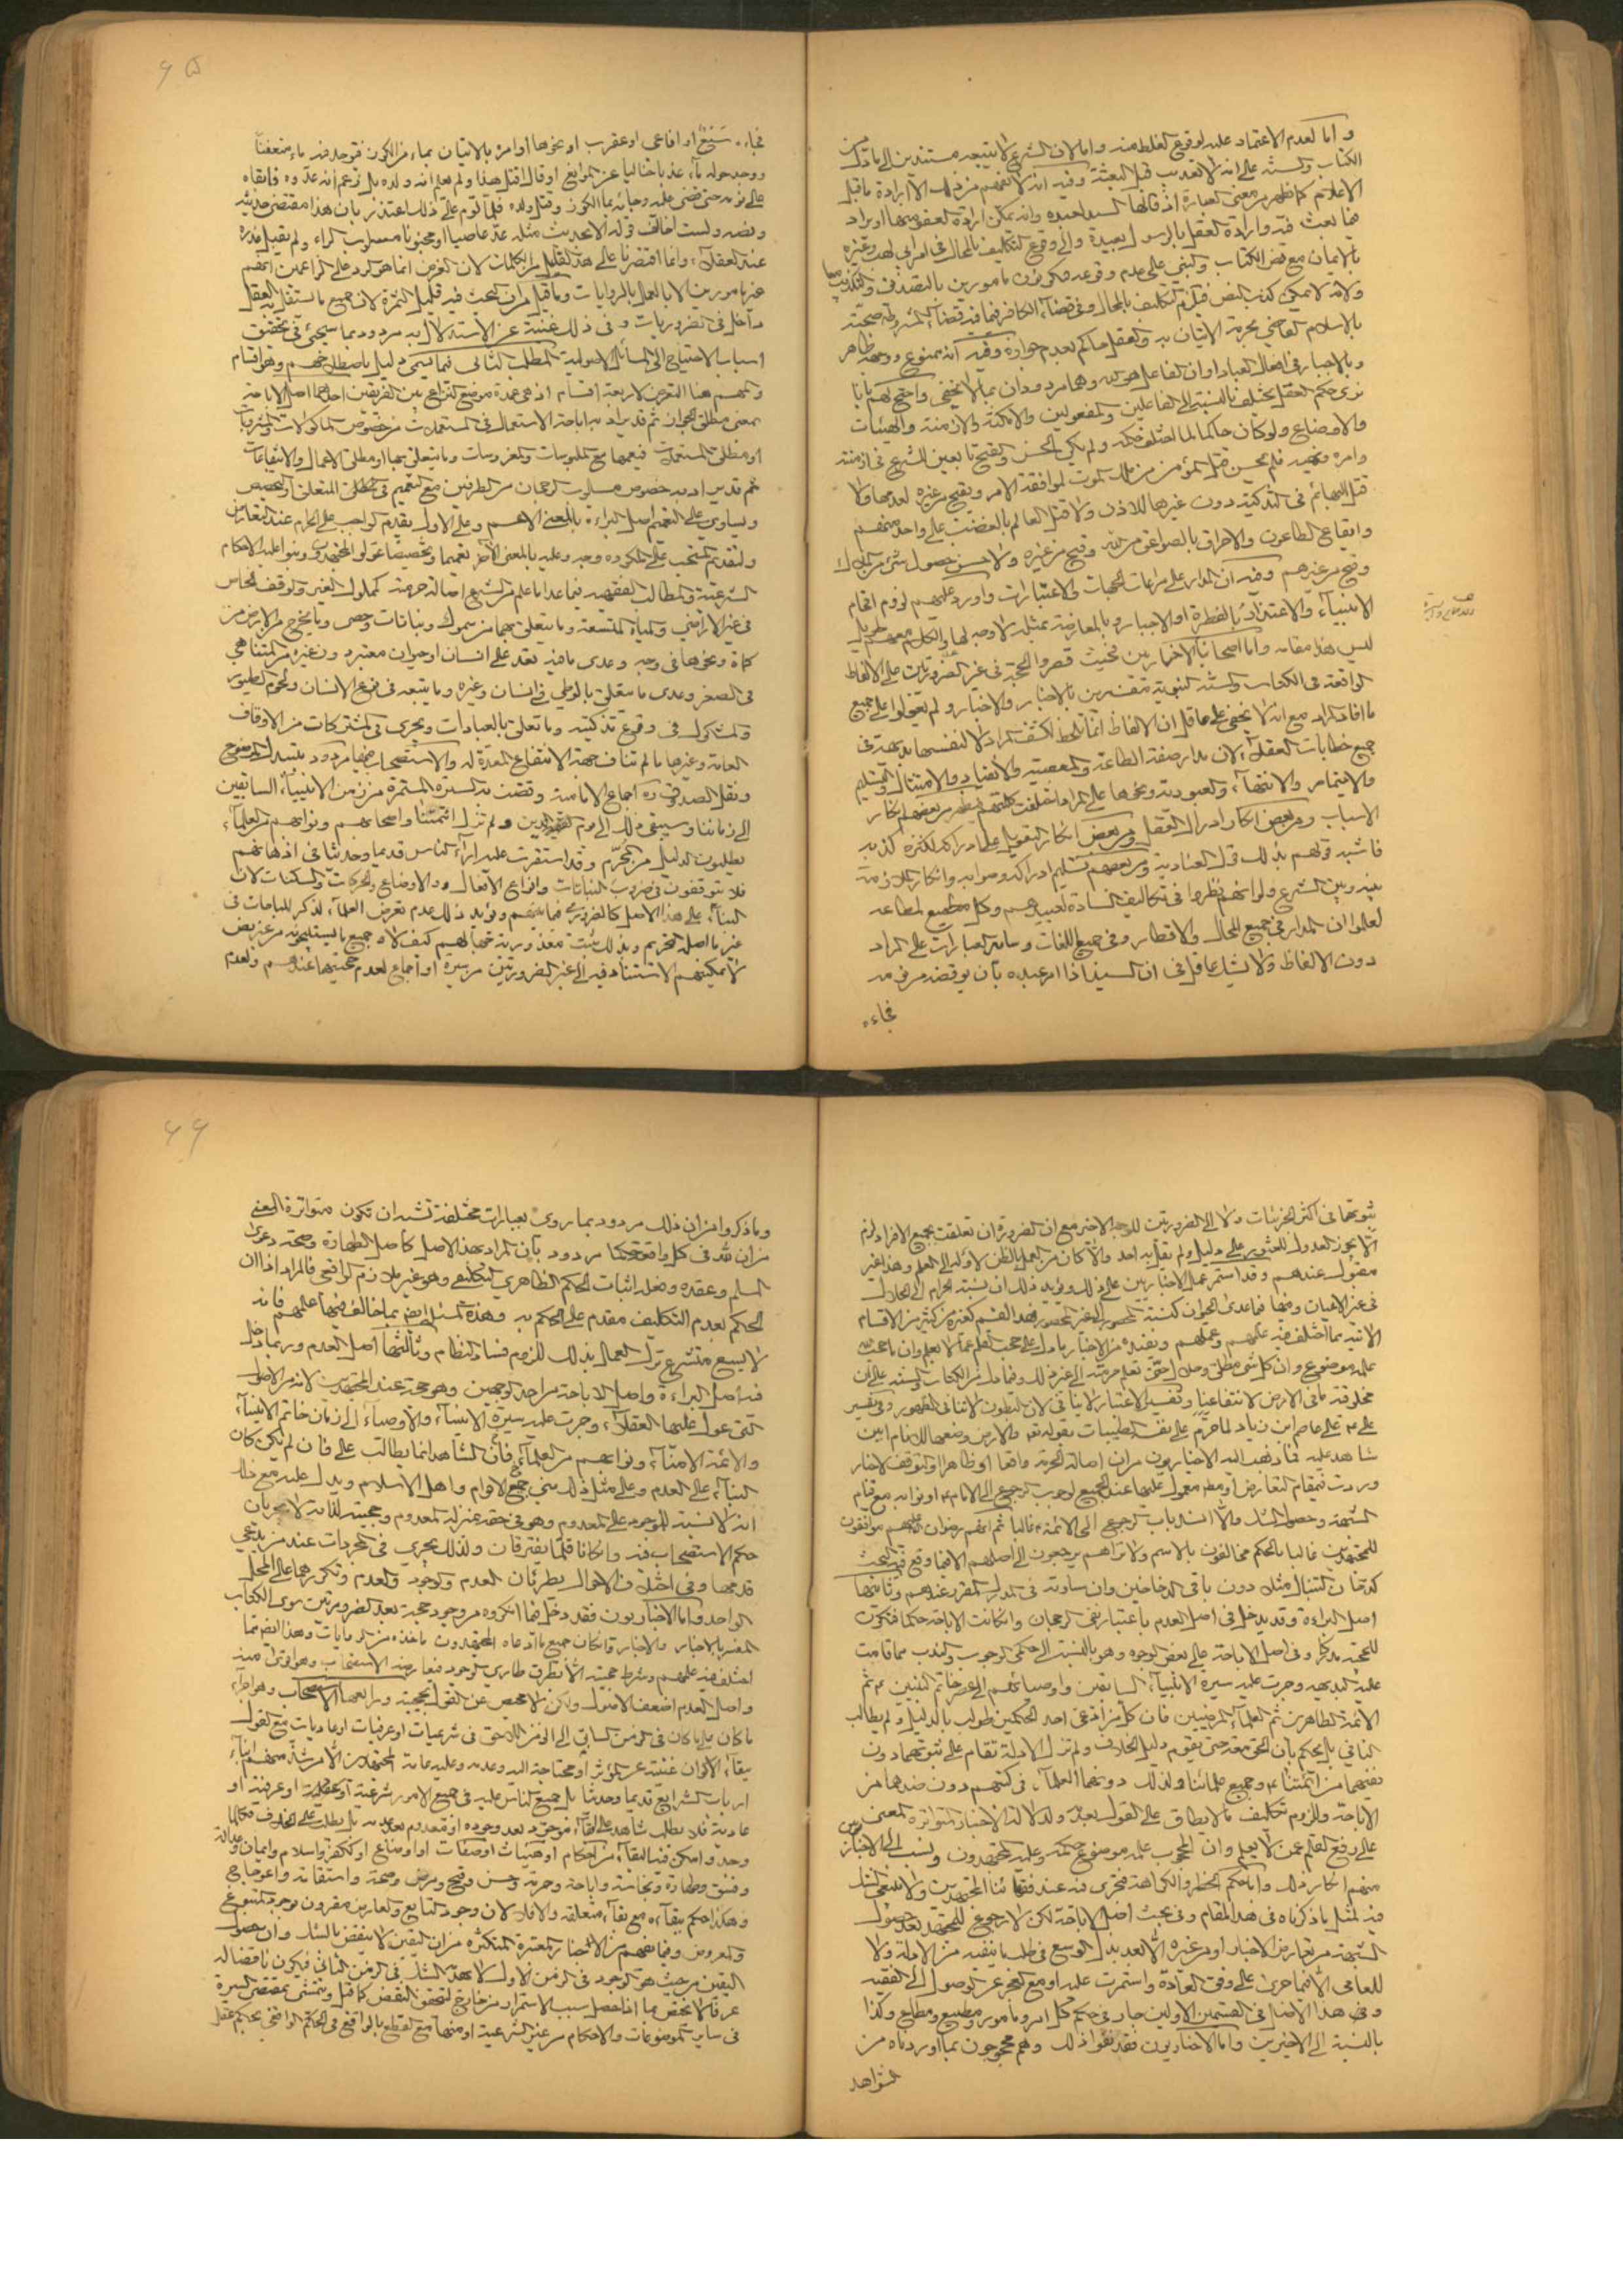 و اما لعدم الاعتماد عليه لوقوع الغلط منه واما لان الشرع لا يتبعه مستندين الى ما دل من
الكتاب والسنة على انه لا تعذيب قبل البعثة وفيه انه لا يفهم من ذلك الا ارادة ما قبل
الاعلام كما ظهر من معنى العبارة اذ قالها السيد لعبده وانه يمكن ارادة العقل منها او يراد
هنا بعث فيه وارادة العقل بالرسول بعيدة والى وقوع التكليف بالمحال في امر ابي لهب وغيره
بالايمان مع نص الكتاب والنبي على عدم وقوعه فيكونون مامورين بالتصديق والتكذيب معا
ولانه لا يمكن كذب النص فيلزم التكليف بالمحال وفي قضاء الكافر فيما فيه قضاء المشروطة صحته
بالاسلام القاضي بحرمة الاتيان به والعقل حاكم بعدم جوازه وفيه انه ممنوع ووجهه ظاهر
وبالاجبار في افعال العباد او ان الفاعل هو الله وهما مردودان بما لا يخفى واحتج لهم بانا
نرى حكم العقل يختلف بالنسبة الى الفاعلين والمفعولين والامكنة والازمنة والهيئات
والاوضاع ولو كان حاكما لما اختلف حكمه ولم يكن الحسن والقبح تابعين للشرع في ازمنة
وامره ونهيه فلم يحسن قتل المؤمن من ملك الموت لموافقة الامر ويقبح من غيره لعدمها ولا
قتل البهائم في التذكية دون غيرها للاذن ولا قتل العالم بالغضب على واحد منهم
وايقاع الطاعون والاحراق بالصواعق من الله وقبح من غيره ولا حسن حصول شئ من الملوك
وقبح من غيرهم وفيه ان المدار على مراعات الجهات والاعتبارات واورد عليهم لزوم افحام
الانبياء والاعتذار بالفطرة او الاجبار وبالمعارضة بمثله لا وجه لها والكلام معهم طويل
ليس هذا مقامه واما اصحابنا الاخباريين فحيث قصروا الحجة في غير الضروريات على الالفاظ
الواقعة في الكتاب والسنة النبوية مفسرين بالاخبار والاخبار ولم يعولوا على جميع
ما افاد المراد مع انه لا يخفى على عاقل ان الالفاظ انما تلحظ لكشف المراد لا لنفسها بديهة في
جميع خطابات العقلاء لان مدار صفة الطاعة والمعصية والانقياد والامتثال والتسليم
والايتمار والانتهاء والعبودية ونحوها على المراد اختلفت كلمتهم فظهر من بعضهم انكار
الاسباب ومن بعض انكار ادراك العقل ومن بعض انكار التعويل على ادراكه لكثرة كذبه
فاشبه قولهم بذلك قول العنادية ومن بعضهم تسليم ادراكه وصوابه وانكار الملازمة
بينه وبين الشرع ولو انهم نظروا في تكاليف السادة لعبيدهم وكل مطيع لمطاعه
لعلموا ان المدار في جميع المحال والاقطار وفي جميع اللغات وساير العبارات على المراد
دون الالفاظ ولا يشك عاقل في ان السيد اذا امر عبده بان يوقضه من نومه
فجاءه
٦٥
فجاءه سبع او افاعي او عقرب او نحوها او امره بالاتيان بماء من الكون فوجد فيه ماء متعفنا
ووجد حوله ماء عذبا خاليا عن الموانع او قال اقتل هذا ولم يعلم انه ولده بل زعم انه عدوه فابقاه
على نومه حتى قضى عليه وجاء بماء الكوز وقتل ولده فلما لوم على ذلك اعتذر بان هذا مقتضى حديثه
ونصه ولست اخالف قوله لا لحديث مثله عد عاصيا او مجنونا مسلوب الراء ولم يقبل عذره
عند العقلاء وانما اقتصرنا على هذا القليل من الكلمات لان الغرض انما هو الرد على الزاعمين انهم
غير مامورين الا بالعمل بالروايات وما قيل من ان البحث فيه قليل الثمرة لان جميع ما يستقل به العقل
داخل في الضروريات وفي ذلك غنية عن الاستدلال به مردود بما سيجئ في تحقيق
اسباب الاحتياج الى المسائل الاصولية المطلب الثاني فيما يسمى دليل باصطلاحهم وهو اقسام
والمهم هنا التعرض لاربعة اقسام اذ هي عمدة موضع النزاع بين الفريقين احدهما اصل الاباحة
بمعنى مطلق الجواز ثم قد يراد به اباحة الاستعمال في المستعملات من خصوص الماكولات والمشروبات
او مطلق المستعملات فيعمها مع الملبوسات والمفروشات وما يتعلق بها او مطلق الاعمال والانتفاعات
ثم قد يراد به خصوص مسلوب الرجحان من الطرفين مع التعميم في المطلق المتعلق او التخصيص
ويساوي على التعميم اصل البراءة بالمعنى الاعم وعلى الاول يقدم الواجب على الحرام عند التعارض
ولتقديم المستحب على المكروه وجه وعليه بالمعنى الاعم تعميما وتخصيصا عول المجتهدون وبنوا عليه الاحكام
الشرعية والمطالب الفقهيه فيما عدا ما علم من الشرع اصالة حرمته كمملوك الغير والوقف الخاص
في غير الاراضي والمياه المتسعة وما يتعلق بهما من سموك ونباتات وحصى وما يخرج من الارض من
كماة ونحوها في وجه وعدى ما فيه نقد على انسان او حيوان معتبر دون غيره من المتناهي
في الصغر وعدى ما يتعلق بالوطي في انسان وغيره وما يتبعه في فروع الانسان ولحوم الطيور
والمشكوك في وقوع تذكيته وما تعلق بالعبادات ويجرى في المشتركات من الاوقاف
العامة وغيرها ما لم تناف جهة الانتفاع المعدة له والاستصحاب فيها مردود بتبدل الموضوع
ونقل الصدوق ره اجماع الامامية وقضت به السيرة المستمرة من زمن الانبياء السابقين
الى زماننا وسيبقى ذلك الى يوم الدين ولم تزل ائمتنا واصحابهم ونوابهم من العلماء
يطلبون الدليل من المحرم وقد استقرت عليه اراء الناس قديما وحديثا في اذهانهم
فلا يتوقفون في ضروب النباتات وانواع الافعال والاوضاع والحركات والسكنات لان
البناء على هذا الاصل كالضروري فيما بينهم ويؤيد ذلك عدم تعرض العلماء لذكر المباحات في
غير ما اصله التحريم وبذلك يثبت معذورية عوامهم كيف لا وجميع ما يستبيحونه من غير نص
لا يمكنهم الاستناد فيه الى غير الضروريتين من سيرة او اجماع لعدم حجيتهما عندهم ولعدم
ثبوتها في اكثر الجزئيات ولا الى الضروريتين للوجه الاخير مع ان الضرورة ان تعلقت بجميع الافراد لزم
ان لا يجوز العدول للعثور على دليل ولم يقل به احد والا كان من العمل بالظن لا وله الى العلم وهذا غير
مقبول عندهم وقد استمر عمل الاخباريين على ذلك ويؤيد ذلك ان نسبة الحرام الى الحلال
في غير الاعيان ومنها فيما عدى الحيوان كنسبة المحصور الى غير المحصور فهذا القسم كغيره من كثير من الاقسام
الاتية مما اختلف فيه علمهم وعملهم ويفيده من الاخبار ما دل على حجب العلم عما لا يعلم وان ما حجب الله
علمه موضوع وان كل شئ مطلق وحلال حتى تعلم حرمته الى غير ذلك وفيما دل من الكتاب والسنة على ان
مخلوقية ما في الارض لانتفاعنا وتفسير الاعتبار لا ينافي لان البطون لا تنافي الظهور وفي تفسير
علي ع على عاصم ابن زياد لما حرم على نفسه الطيبات بقوله تعه والارض وضعها للانام ابين
شاهد عليه فما ذهب اليه الاخباريون من ان اصالة الحرمة واقعا او ظاهرا والتوقف لاخبار
وردت في مقام التعارض او مطه معول عليها عند الجميع لوجوب الرجوع الى الامام ع او نوابه مع قيام
الشبهة وحصول الشك والا انسد باب الرجوع الى الائمة ع غالبا ثم انهم رضوان الله عليهم موافقون
للمجتهدين غالبا بالحكم مخالفون بالاسم ولا تراهم يرجعون الى اصلهم الا فيما وقع فيه البحث
كدخان التتن مثلا دون باقي الدخاخين وان ساوته في المدرك المقرر عندهم وثانيها
اصل البراءة وقد يدخل في اصل العدم باعتبار نفي الرجحان وان كانت الاباحة حكما فتكون
للحجية مدركا وفي اصل الاباحة على بعض الوجوه وهو بالنسبة الى حكمي الوجوب والندب مما قامت
عليه البديهه وجرت عليه سيرة الانبياء السابقين واوصيائهم الى عصر خاتم النبيين ع ثم
الائمة الطاهرين ثم العلماء المرضيين فان كل من ادعى احد الحكمين طولب بالدليل ولم يطالب
النافي بل يحكم بان الحق معه حتى يقوم دليل الخلاف ولم تزل الادلة تقام على ثبوتهما دون
نفيهما من ائمتنا ع وجميع علمائنا ولذلك دونهما العلماء في كتبهم دون ضدهما من
الاباحة وللزوم تكليف ما لا يطاق على القول بعدمه ولدلالة الاخبار المتواترة المعنى
على رفع القلم عمن لا يعلم وان المحجوب علمه موضوع حكمه وعليه المجتهدون ونسب الى الاخباريين
منهم انكار ذلك واما حكم الحظر والكراهة فيجرى فيه عند فقهائنا المجتهدين ولا ينبغي الشك
فيه لمثل ما ذكرناه في هذا المقام وفي مبحث اصل الاباحة لكن لا رجوع للمجتهد بعد حصول
الشبهة من تعارض الاخبار او من غيره الا بعد بذل الوسع في طلب ما ينفيه من الادلة ولا
للعامي الا فيما جرى على وفق العادة واستمرت عليه او مع العجز عن الوصول الى الفقيه
وفي هذا الاصل في القسمين الاولين جار في حكم كل امر ومامور ومطيع ومطاع وكذا
بالنسبة الى الاخيرين واما الاخباريون فقد نفوا ذلك وهم محجوجون بما اوردناه من
الشواهد
٦٦
وما ذكروا من ان ذلك مردود بما روي بعبارات مختلفة تشبه ان تكون متواترة المعنى
من ان لله في كل واقعة حكما مردود بان المراد بهذا الاصل كاصل الطهارة وصحة دعوى
المسلم وعقده وفعله اثبات الحكم الظاهري التكليفي وهو غير ملازم للواقعي فالمراد اذا ان
الحكم بعدم التكليف مقدم على الحكم به وهذه المسئلة ايضا مما خالف فيها علمهم فانه
لا يسع متشرع ترك العمل بذلك للزوم فساد النظام وثالثها اصل العدم وربما دخل
فيه اصل البراءة واصل الاباحة من احد الوجهين وهو حجة عند المجتهدين لانه من الاصول
التي عول عليها العقلاء وجرت عليه سيرة الانبياء والاوصياء الى زمان خاتم الانبياء
والائمة الامناء ونوابهم من العلماء فان الشاهد انما يطالب على فان لم يكن كان
البناء على العدم وعلى مثل ذلك بني جميع الاقوام واهل الاسلام ويدل عليه مع ذلك
انه لا نسبة للموجود على المعدوم وهو في حقه بمنزلة المعدوم وحجيته لذاته لا بجريان
حكم الاستصحاب فيه وان كانا قلما يفترقان ولذلك يجري في المجردات عند من يدعي
قدمها وفي اختلاف الاحوال بطريان العدم والوجود والعدم وتكررهما على المحل
الواحد واما الاخباريون فقد دخل فيما انكروه من وجود حجية بعد الضروريتين سوى الكتاب
المفسر بالاخبار والاخبار وان كان جميع ما ادعاه المجتهدون ماخوذه من الروايات وهذا ايضا مما
اختلف فيه علمهم وشرط حجيته ان لا يطرق طاري الوجود فيعارضه الاستصحاب وهو اقوى منه
واصل العدم اضعف الاصول ولكن لا محيص عن القول بحجيته ورابعها الاستصحاب وهو اجراء
ما كان على ما كان في الزمن السابق الى الزمن اللاحق في شرعيات او عرفيات او عاديات مع القول
ببقاء الاكوان غنية عن المؤثر او محتاجة اليه وعدمه وعليه عامة المجتهدين الا من شذ منهم وابناء
ارباب الشرايع قديما وحديثا بل جميع الناس عليه في جميع الامور شرعية او عقلية او عرفية او
عادية فلا يطلب شاهد على بقاء موجود بعد وجوده او معدوم بعد عدمه بل يطلب على الخلاف فكلما
وجد وامكن فيه البقاء من احكام او هيئات او صفات او اوضاع او كفر واسلام وايمان وعدالة
وفسق وطهارة ونجاسة واباحة وحرمة وحسن وقبح ومرض وصحة واستقامة واعوجاج
وهكذا حكم ببقاءه مع بقاء متعلقه والا فلا لان وجود التابع والعارض مقرون بوجود المتبوع
والمعروض وفيما يفهم من الاخبار المعتبرة المتكثرة من ان اليقين لا ينقض بالشك وان حصول
اليقين من حيث هو الوجود في الزمن الاول لا يهدمه الشك في الزمن الثاني فيكون ناقضا له
عرفا لا يختص بما اذا حصل سبب الاستمرار من خارج لتحقق النقض كما قيل ويتمشى بمقتضى السيرة
في ساير الموضوعات والاحكام من غير الشرعية او منها مع القطع بالواقع في الحكم الواقعي بحكم عقل